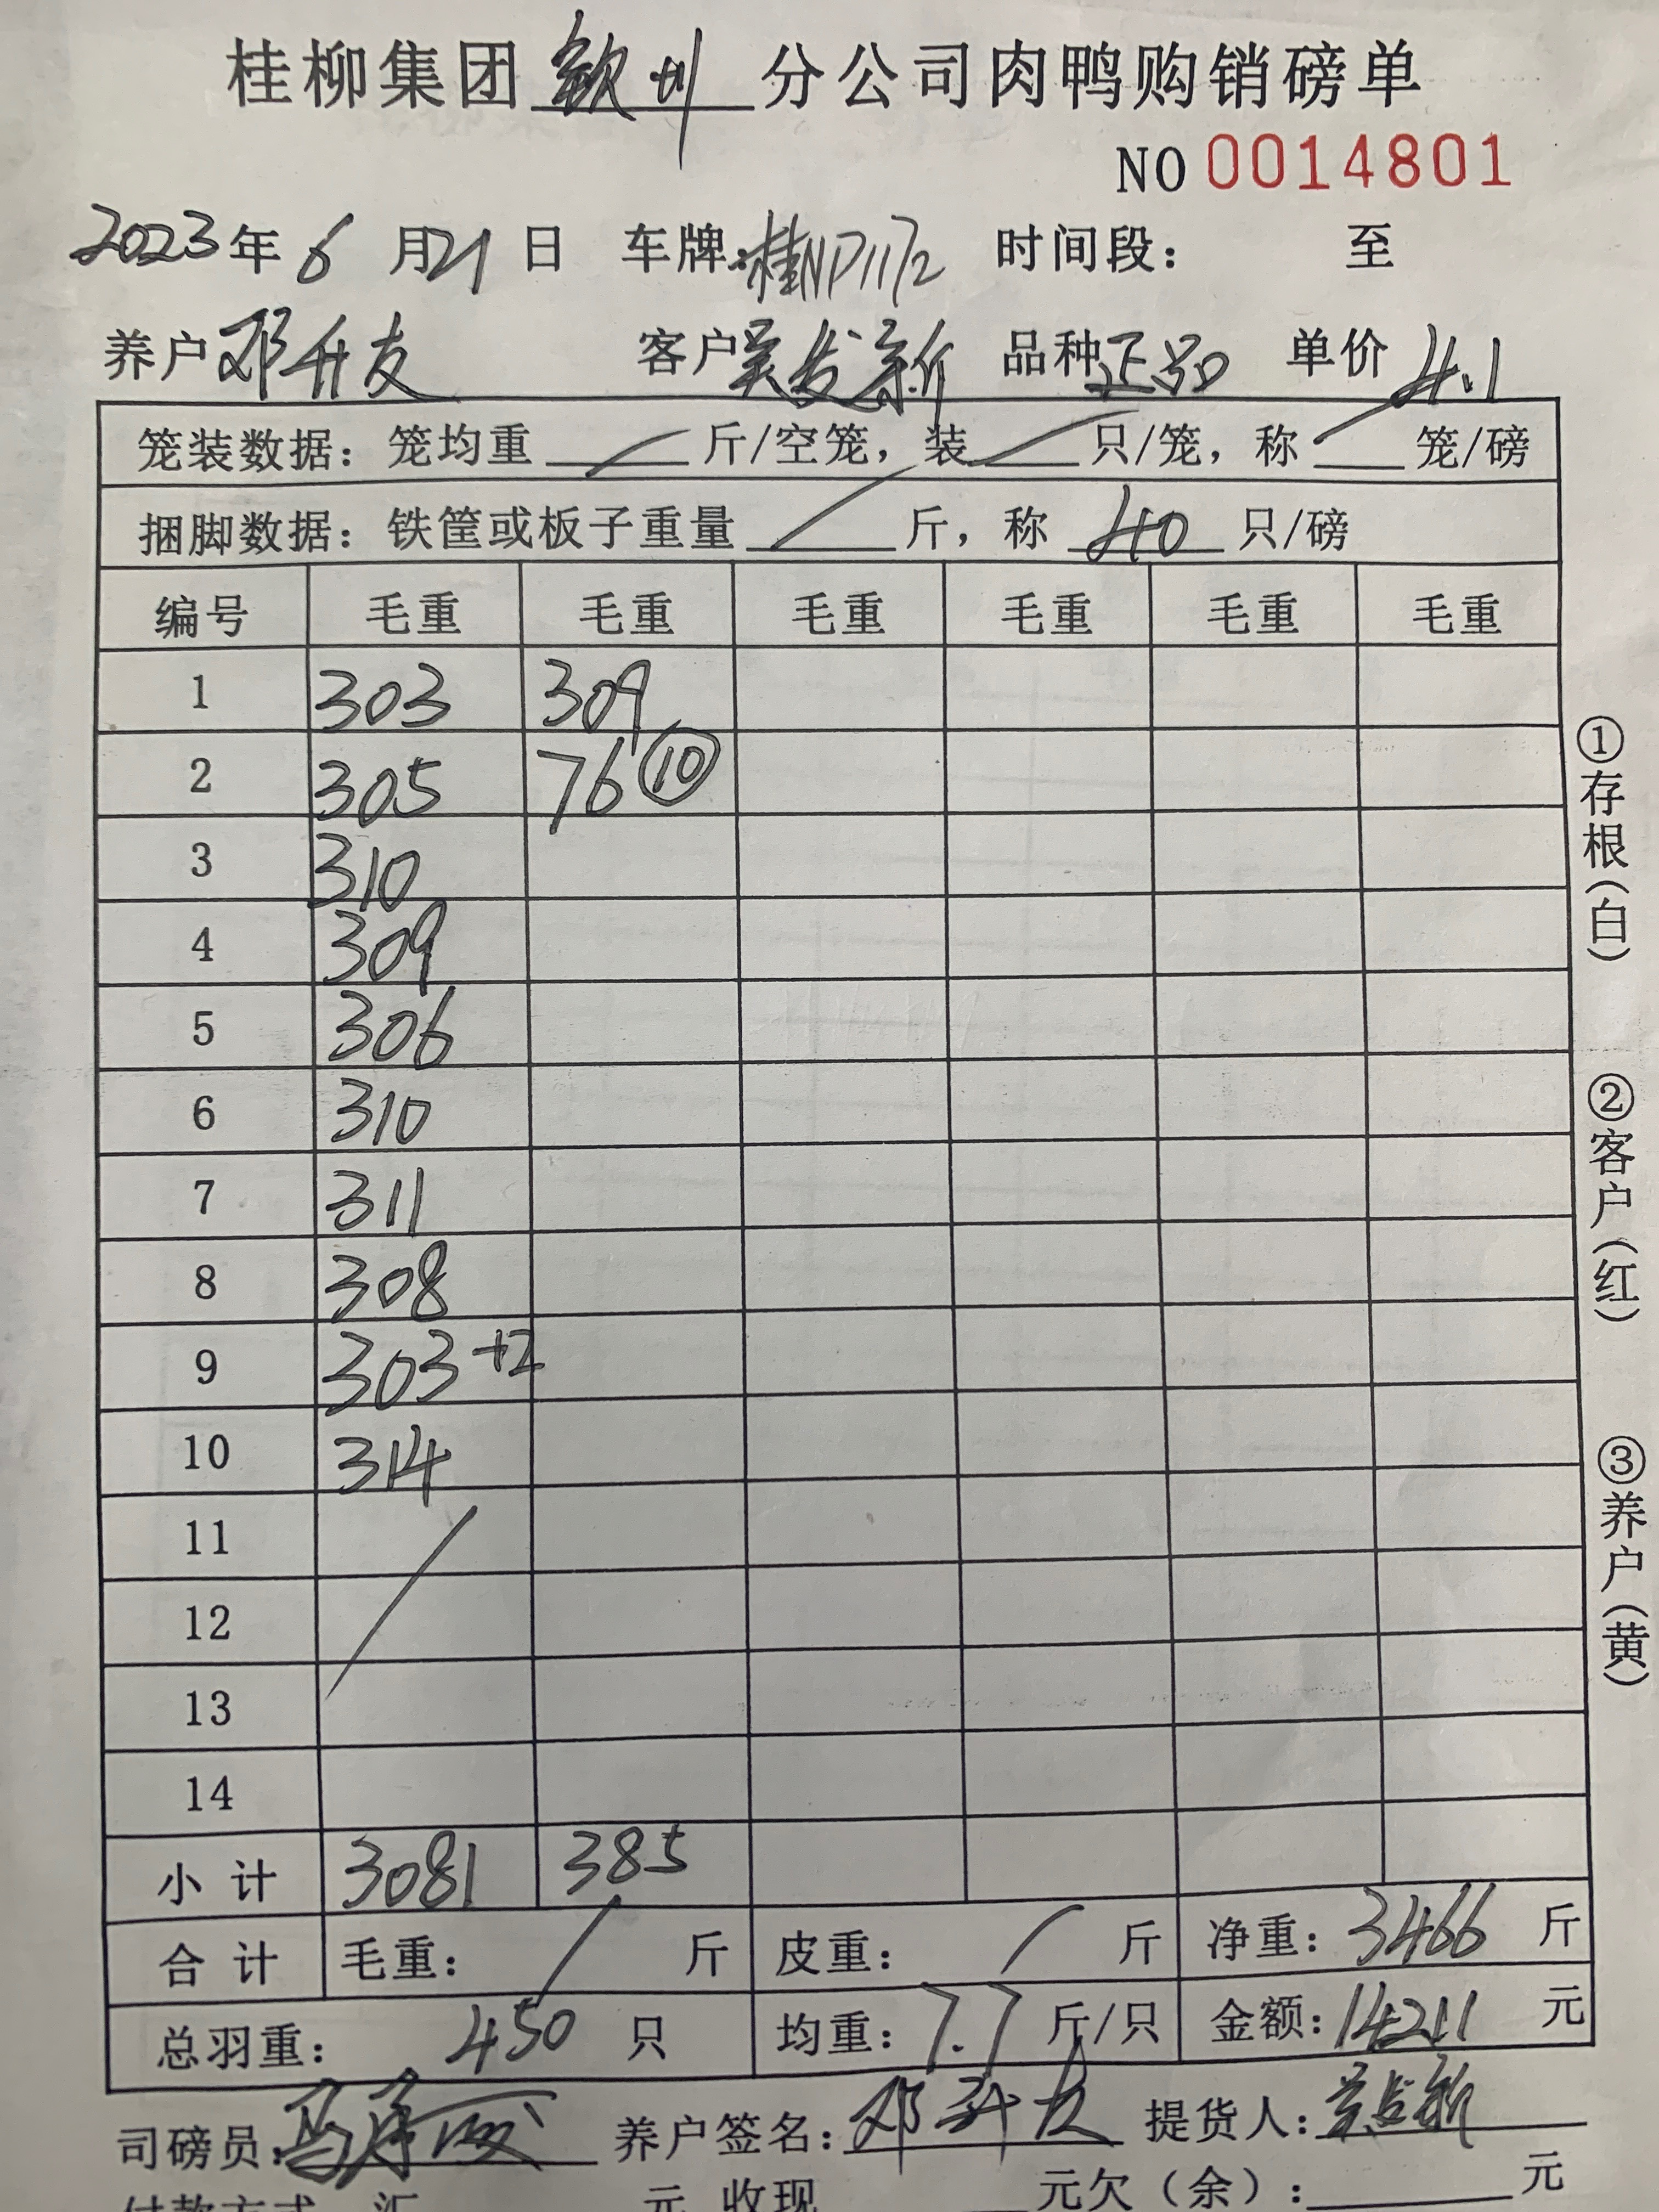 桂柳集团 钦州 分公司肉鸭购销磅单
NO 0014801
2023年 6 月 21 日 车牌：桂NP1172 时间段： 至
养户 邓升友 客户 吴发新 品种 正品 单价 4.1
笼装数据：笼均重 / 斤/空笼，装 / 只/笼，称 / 笼/磅
捆脚数据：铁筐或板子重量 / 斤，称 40 只/磅
编号 毛重 毛重 毛重 毛重 毛重 毛重
1 303 309
2 305 76 ⑩
3 310
4 309
5 306
6 310
7 311
8 308
9 303 +2
10 314
11
12
13
14
小计 3081 385
合计 毛重： / 斤 皮重： / 斤 净重：3466 斤
总羽重： 450 只 均重：7.7 斤/只 金额：14211 元
司磅员： 养户签名：邓升友 提货人：吴发新
付款方式 汇 元 收现 元欠（余）： 元
①存根（白）
②客户（红）
③养户（黄）